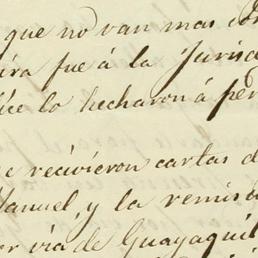 que no van mas con
fue á la Juris
lo hecharon á per
recivieron cartas d
Manuel, y la remis
via de Guayaquil